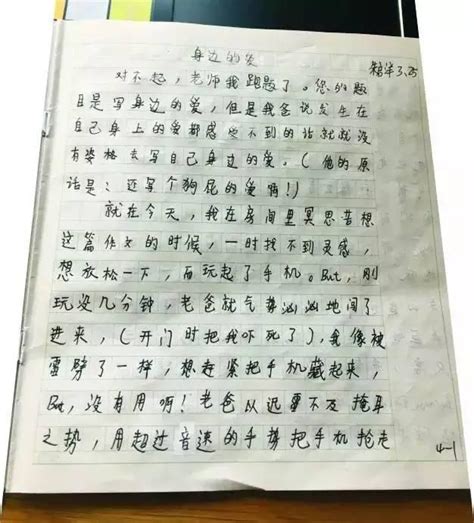 身边的爱
3.25
对不起，老师我跑题了。您的题
目是写身边的爱，但是我爸说发生在
自己身上的爱都感受不到的话就就没
有资格去写自己身边的爱。（他的原
话是：还写个狗屁的爱啊！）
就在今天，我在房间里冥思苦想
这篇作文的时候，一时找不到灵感，
想放松一下，而玩起了手机。But，刚
玩没几分钟，老爸就气势汹汹地闯了
进来，（开门时把我吓死了），我像被
雷劈了一样，想赶紧把手机藏起来，
But，没有用啊！老爸以迅雷不及掩耳
之势，用超过音速的手势把手机抢走
4-1